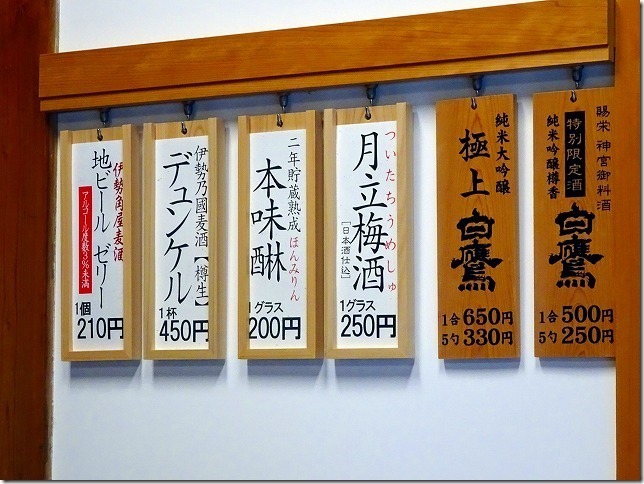 賜栄 神宮御料酒
特別限定酒
純米吟醸樽香
白鷹
1合500円
5勺250円
純米大吟醸
極上
白鷹
1合650円
5勺330円
ついたちうめしゅ
月立梅酒
[日本酒仕込]
1グラス
250円
二年貯蔵熟成 ほんみりん
本味醂
1グラス
200円
伊勢乃國麦酒【樽生】
デュンケル
1杯
450円
伊勢角屋麦酒
地ビール ゼリー
アルコール度数3%未満
1個
210円